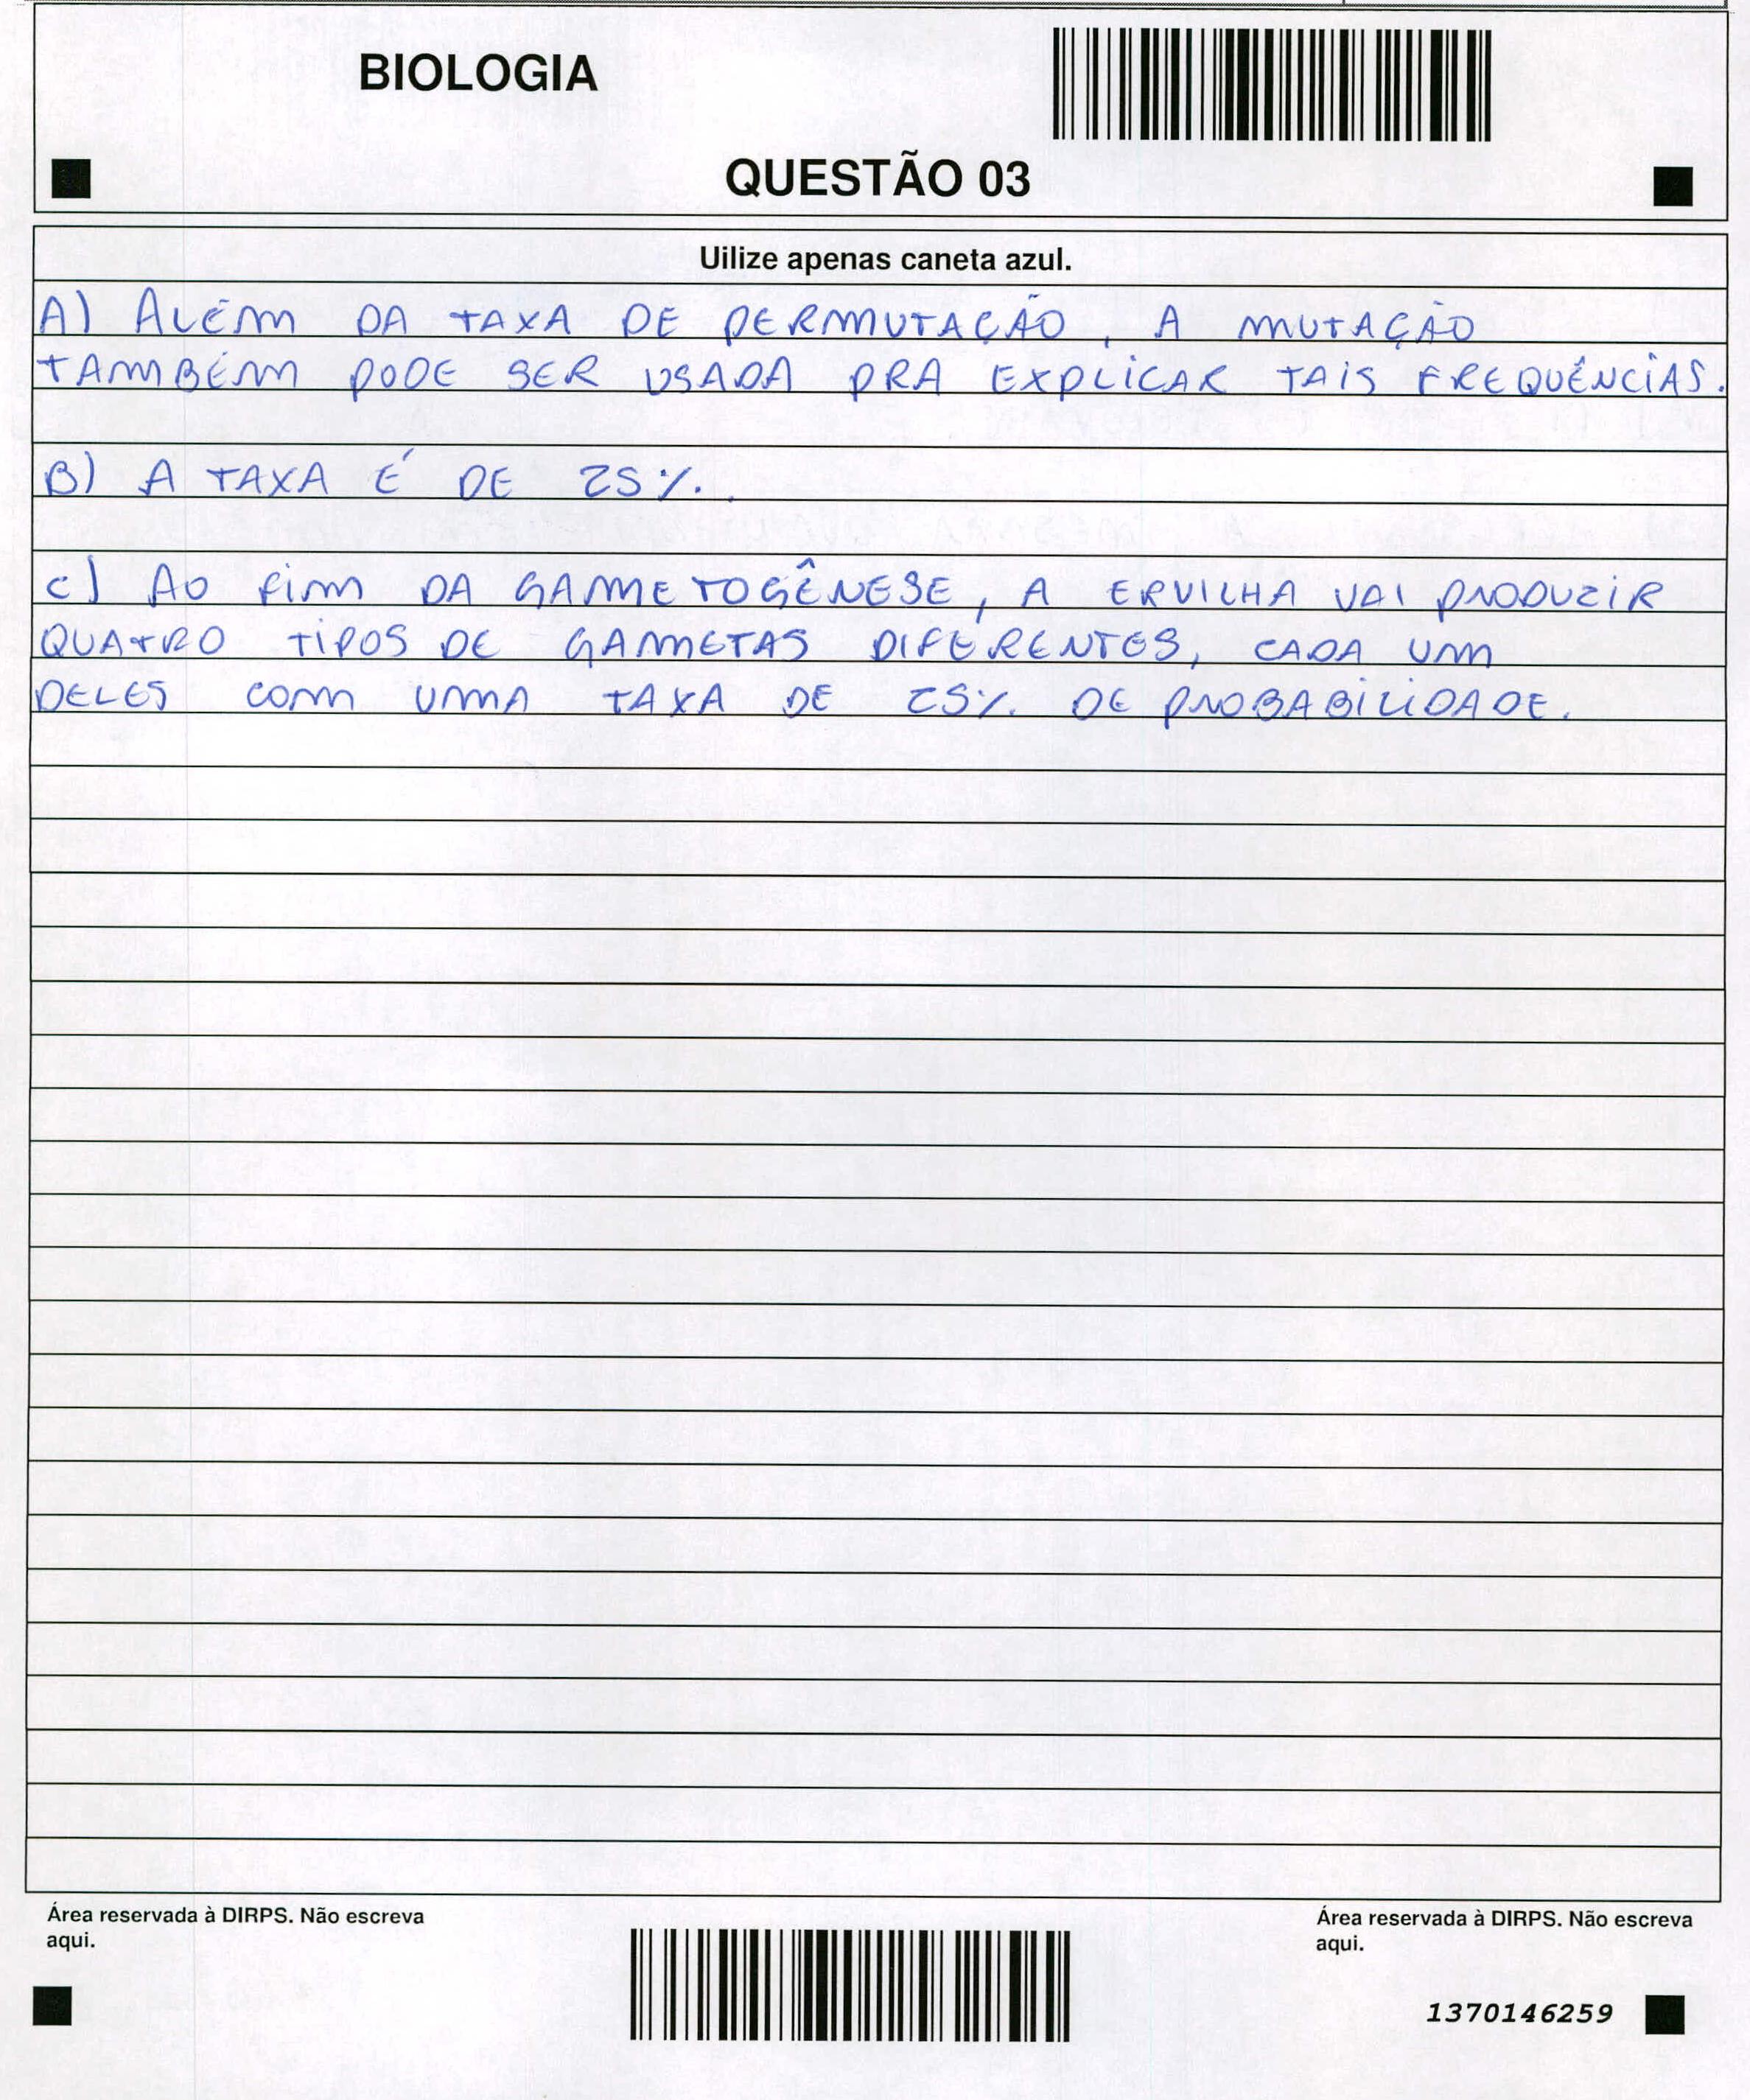 BIOLOGIA
QUESTÃO 03
Uilize apenas caneta azul.
A) ALÉM DA TAXA DE PERMUTAÇÃO, A MUTAÇÃO
TAMBÉM PODE SER USADA PRA EXPLICAR TAIS FREQUÊNCIAS.
B) A TAXA É DE 25%.
C) AO FIM DA GAMETOGÊNESE, A ERVILHA VAI PRODUZIR
QUATRO TIPOS DE GAMETAS DIFERENTES, CADA UM
DELES COM UMA TAXA DE 25% DE PROBABILIDADE.
Área reservada à DIRPS. Não escreva
aqui.
Área reservada à DIRPS. Não escreva
aqui.
1370146259